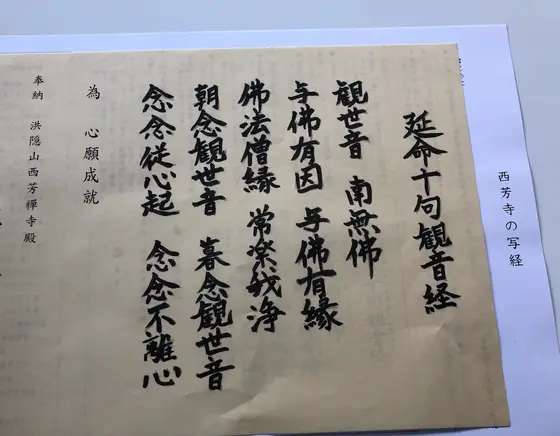 西芳寺の写経
延命十句観音経
観世音 南無佛
与佛有因 与佛有縁
佛法僧縁 常楽我浄
朝念観世音 暮念観世音
念念従心起 念念不離心
為 心願成就
奉納 洪隠山西芳禅寺殿